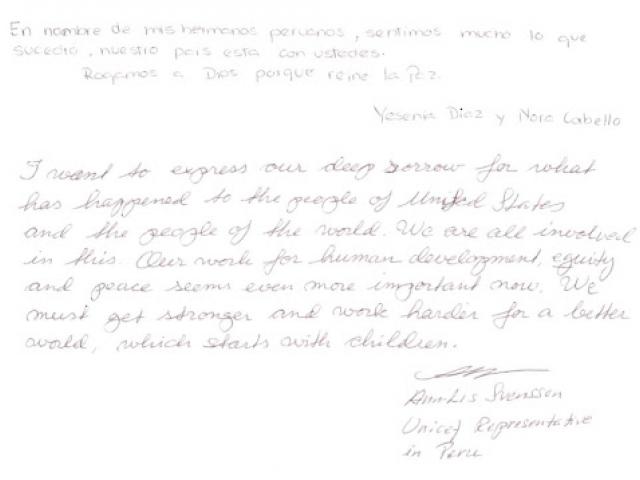 En nombre de mis hermanos peruanos, sentimos mucho lo que
sucedió, nuestro pais esta con ustedes.
Rogamos a Dios porque reine la Paz.
Yesenia Diaz y Nora Cabello
I want to express our deep sorrow for what
has happened to the people of United States
and the people of the world. We are all involved
in this. Our work for human development, equity
and peace seems even more important now. We
must get stronger and work harder for a better
world, which starts with children.
AnnLis Svensson
Unicef Representative
in Peru